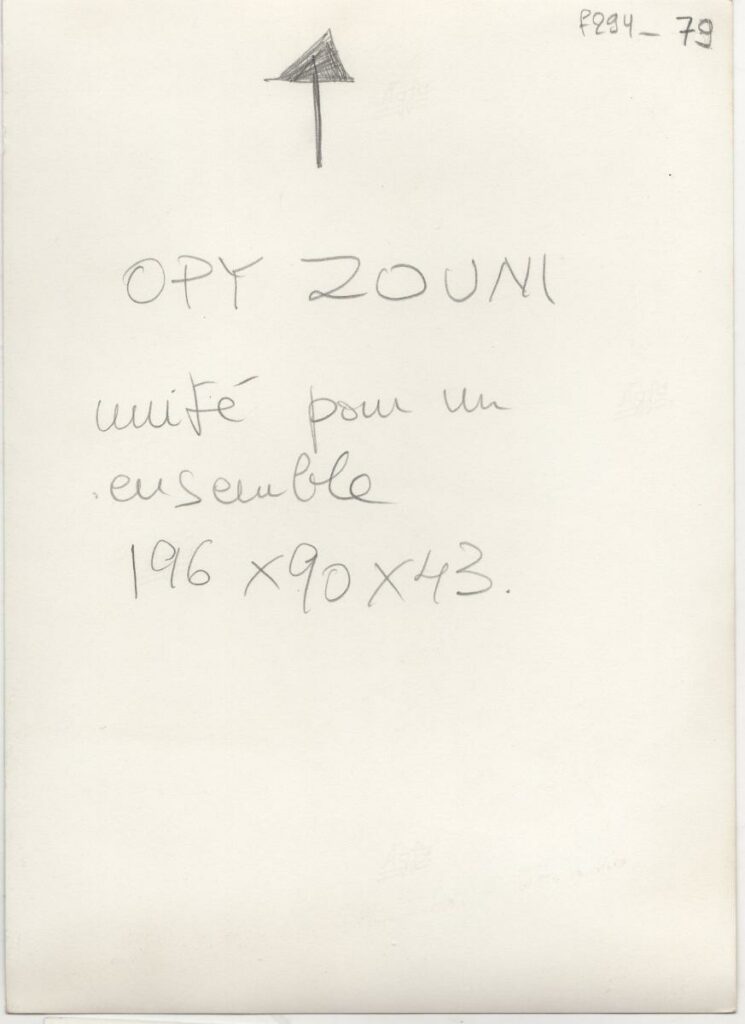 F294 - 79
OPY ZOUNI
unité pour un
ensemble
196 x 90 x 43.